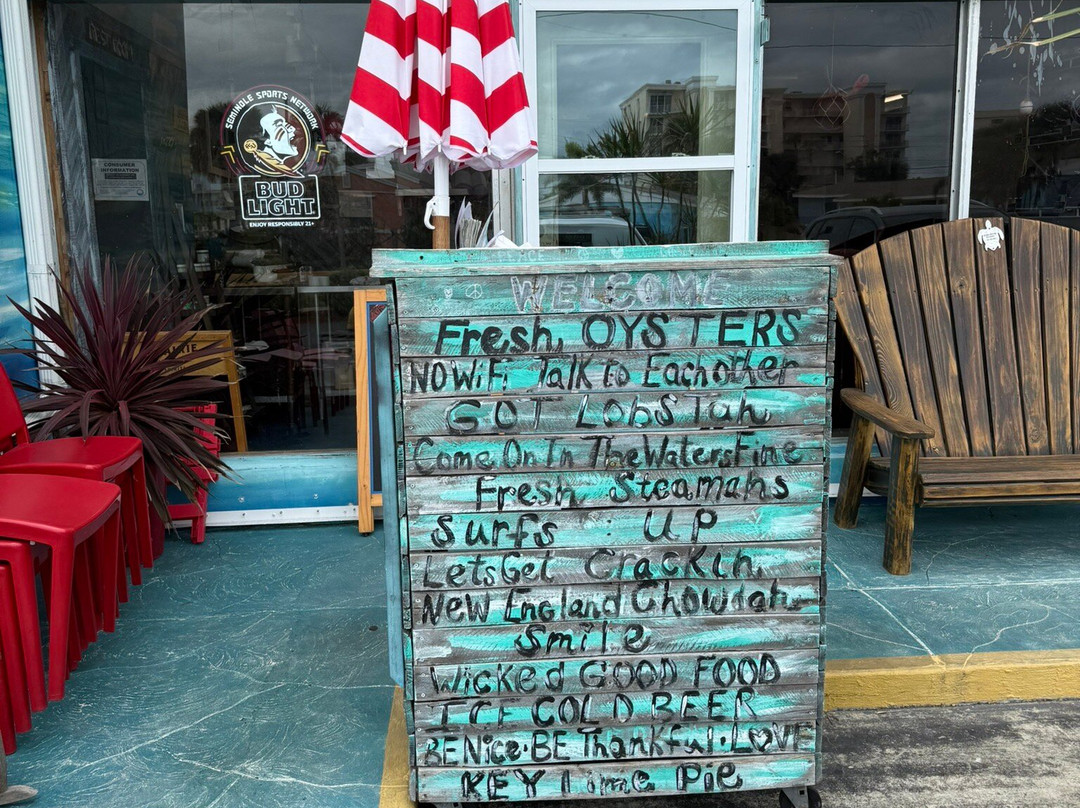 SEMINOLE SPORTS NETWORK
BUD
LIGHT
ENJOY RESPONSIBLY 21+
CONSUMER
INFORMATION
WELCOME
Fresh OYSTERS
NO WiFi Talk to Eachother
GOT LobsTah
Come On In The Waters Fine
Fresh Steamahs
Surfs UP
Lets Get Crackin
New England Chowdah
Smile
Wicked GOOD FOOD
ICE COLD BEER
BE Nice · BE Thankful · LOVE
KEY lime Pie